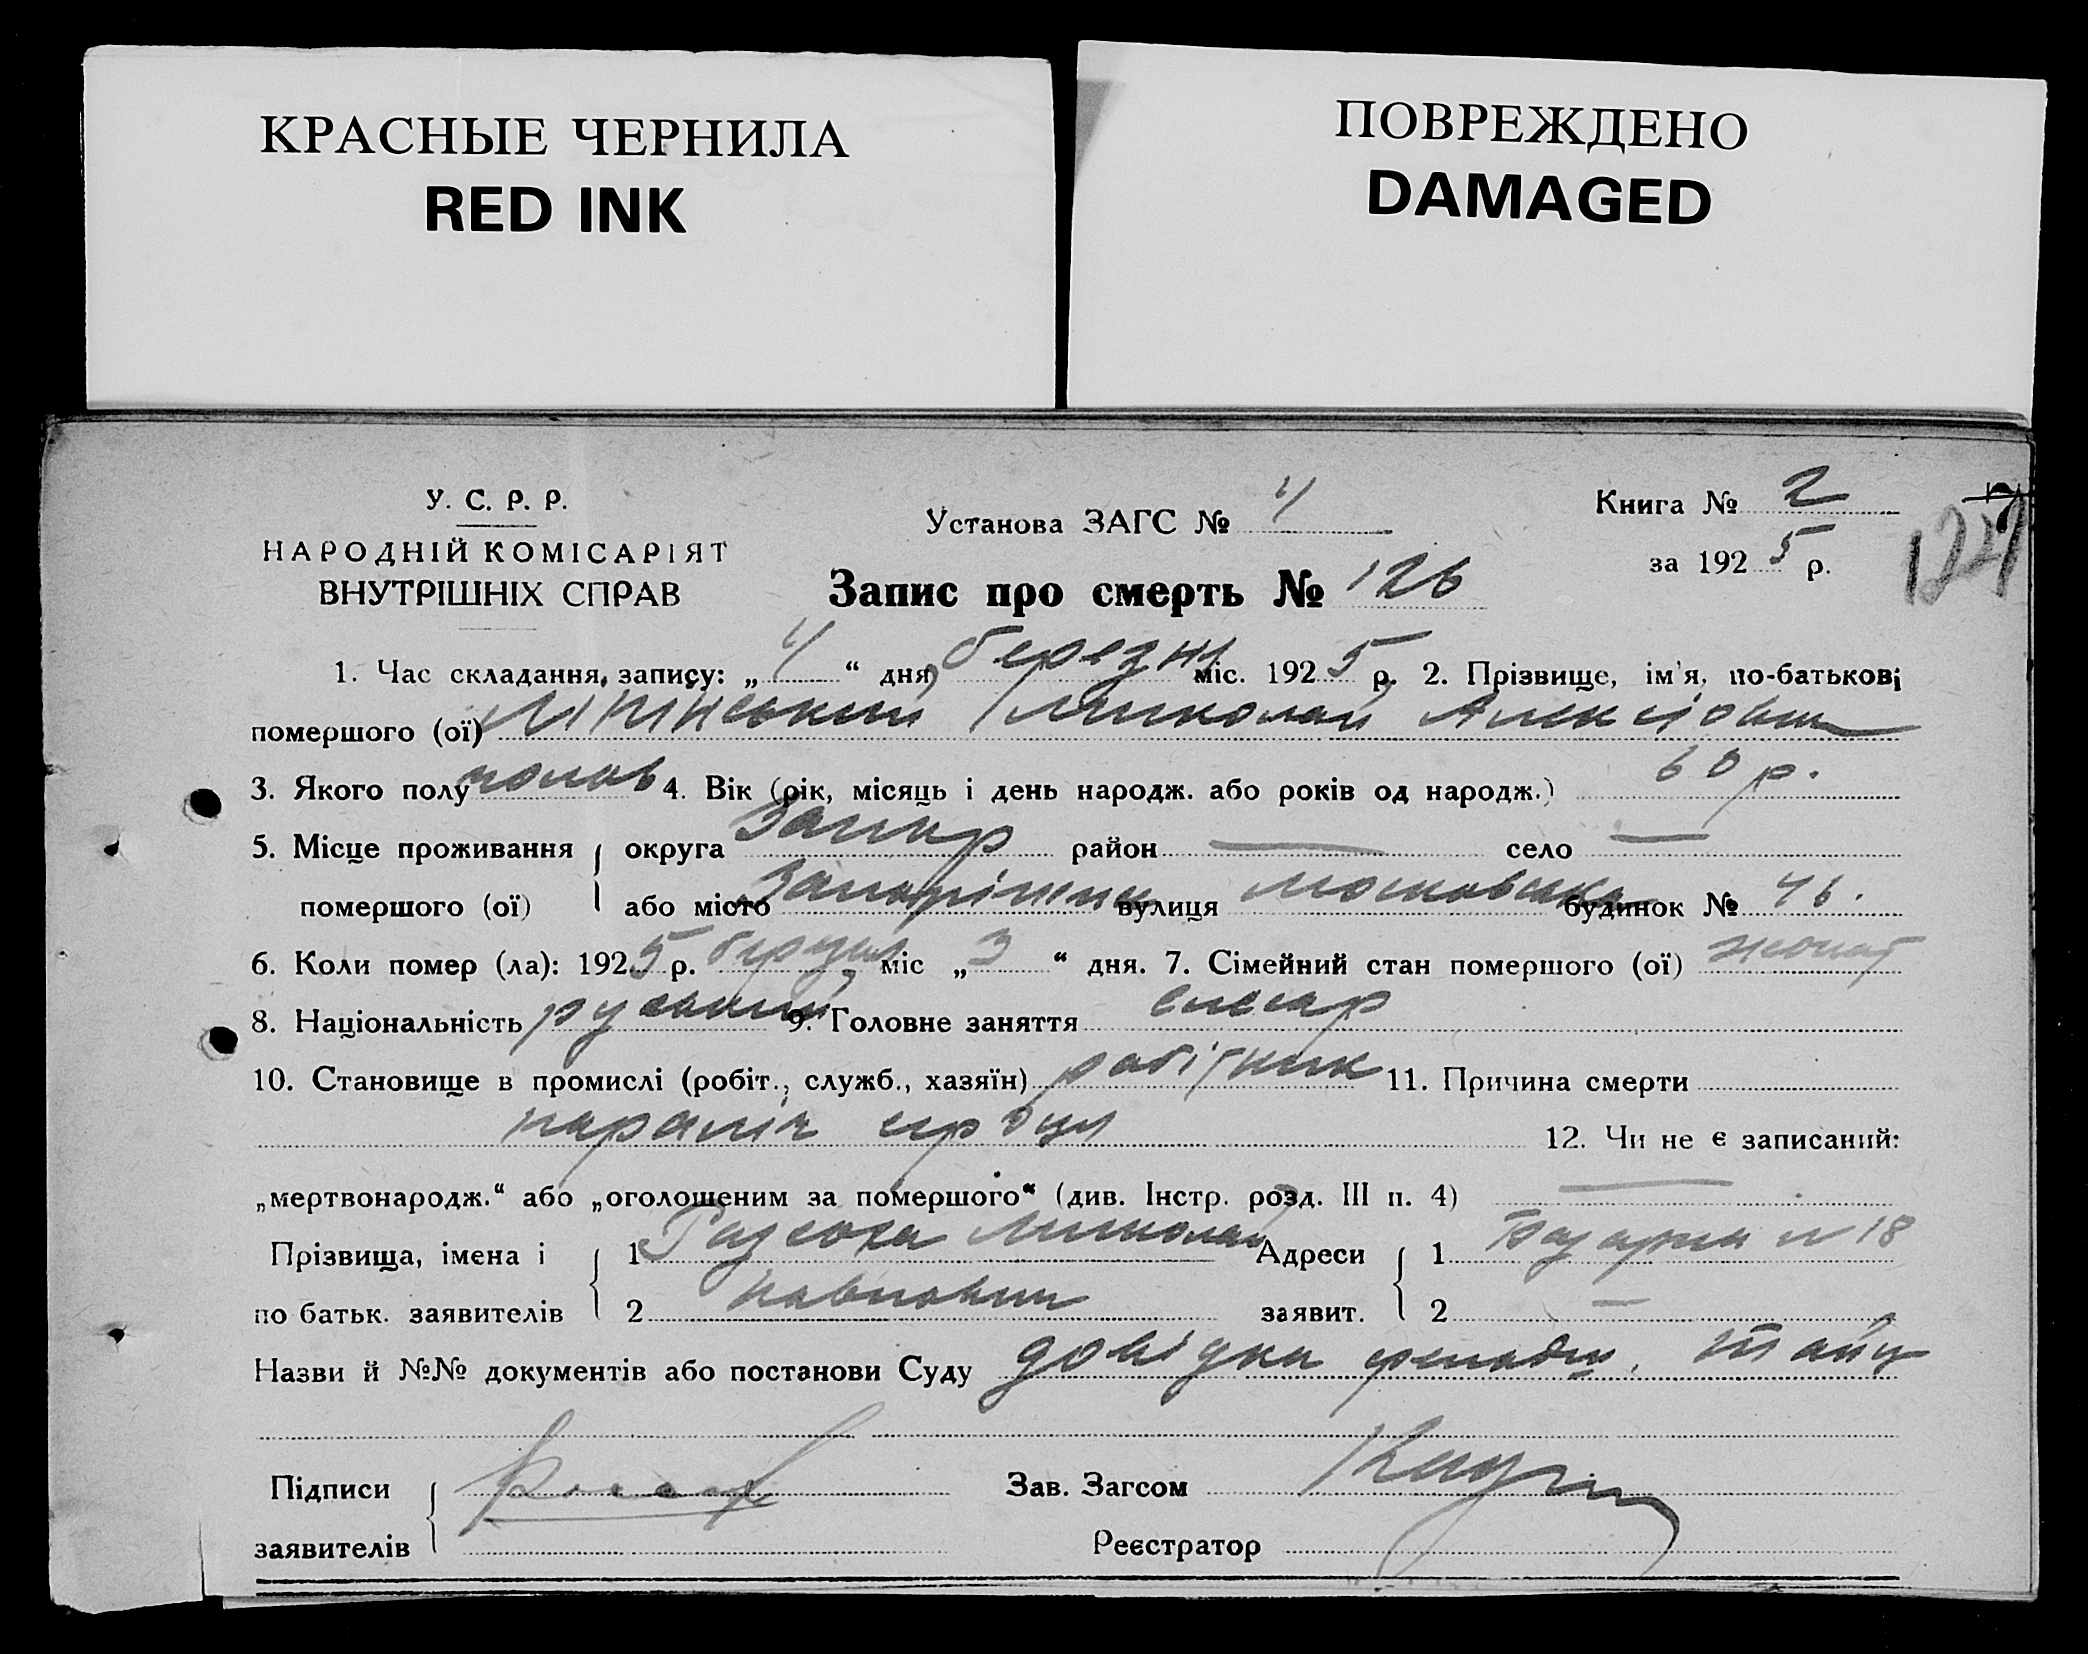 КРАСНЫЕ ЧЕРНИЛА
RED INK
ПОВРЕЖДЕНО
DAMAGED
У. С. Р. Р.
НАРОДНІЙ КОМІСАРІЯТ
ВНУТРІШНІХ СПРАВ
Установа ЗАГС № 4
Книга № 2
за 1925 р.
127
Запис про смерть № 126
1. Час складання запису: „4“ дня березня міс. 1925 р. 2. Прізвище, ім'я, по-батькові
помершого (ої) Миколай
3. Якого полу чолов 4. Вік (рік, місяць і день народж. або років од народж.) 60 р.
5. Місце проживання округа Запор район — село —
помершого (ої) або місто Запоріжжя вулиця Московська будинок № 46.
6. Коли помер (ла): 1925 р. березня міс „3“ дня. 7. Сімейний стан помершого (ої) жонат
8. Національність руський 9. Головне заняття слесар
10. Становище в промислі (робіт., служб., хазяїн) робітник 11. Причина смерти
параліч сердця 12. Чи не є записаний:
„мертвонародж.“ або „оголошеним за помершого“ (див. Інстр. розд. III п. 4) —
Прізвища, імена і 1 Миколай Адреси 1 N 18
по батьк. заявителів 2 Павлович заявит. 2 —
Назви й №№ документів або постанови Суду довідка
Підписи Зав. Загсом
заявителів Реєстратор